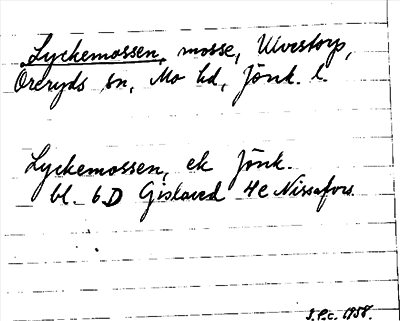 Lyckemossen, mosse, Ulvestorp,
Öreryds sn, Mo hd, Jönk. l.
Lyckemossen, ek Jönk.
bl. 6D Gislaved 4e Nissafors
S.P.c. 1958.